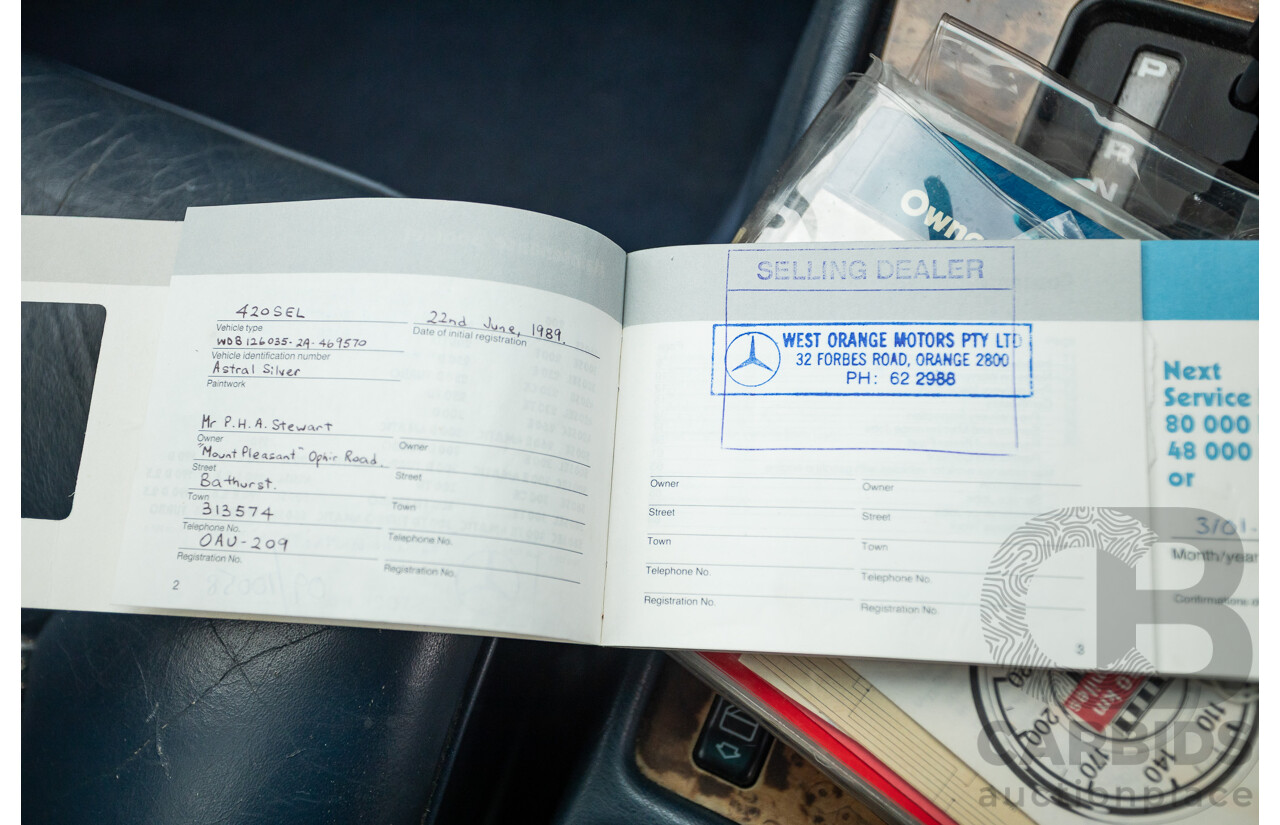 P
R
N
Owne
420SEL
Vehicle type
22nd June, 1989.
Date of initial registration
WDB126035-2A-469570
Vehicle identification number
Astral Silver
Paintwork
Mr P.H.A. Stewart
Owner
"Mount Pleasant" Ophir Road.
Street
Bathurst.
Town
313574
Telephone No.
OAU-209
Registration No.
Owner
Street
Town
Telephone No.
Registration No.
2
SELLING DEALER
WEST ORANGE MOTORS PTY LTD
32 FORBES ROAD, ORANGE 2800
PH: 62 2988
Owner
Street
Town
Telephone No.
Registration No.
Owner
Street
Town
Telephone No.
Registration No.
3
Next
Service
80 000
48 000
or
3/01.
Month/year
110
140
170
200
CARBIDS
auctionplace